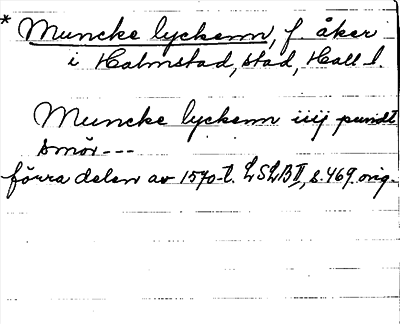 * Muncke lyckenn, f. åker
i Halmstad, stad, Hall l.
Muncke lyckenn iiij pundt
smör ---
förra delen av 1570-t. LSLB II, s. 469. orig.